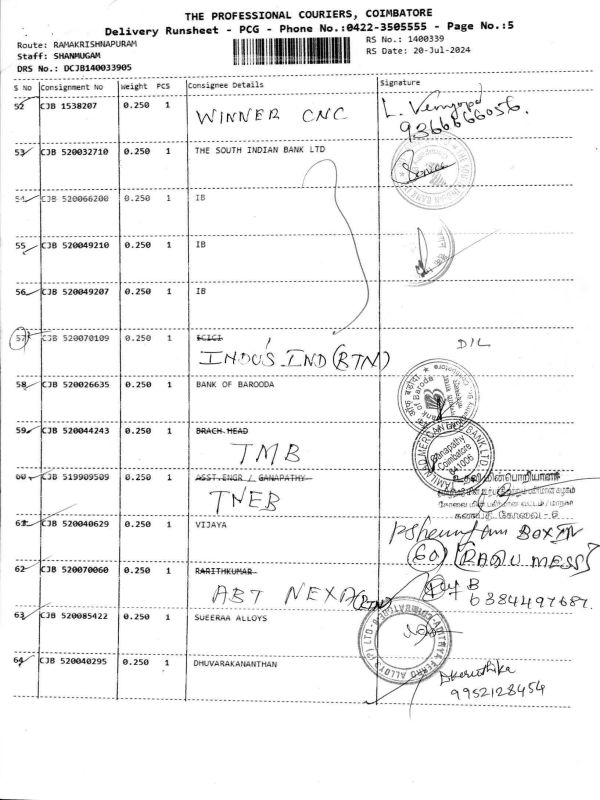 THE PROFESSIONAL COURIERS, COIMBATORE
Delivery Runsheet - PCG - Phone No.:0422-3505555 - Page No.:5
Route: RAMAKRISHNAPURAM
RS No.: 1400339
Staff: SHANMUGAM
RS Date: 20-Jul-2024
DRS No.: DCJB140033905
S No Consignment No Weight PCS Consignee Details Signature
52 CJB 1538207 0.250 1 WINNER CNC
9366666056.
53 CJB 520032710 0.250 1 THE SOUTH INDIAN BANK LTD
54 CJB 520066200 0.250 1 IB
55 CJB 520049210 0.250 1 IB
56 CJB 520049207 0.250 1 IB
57 CJB 520070109 0.250 1 ICICI
INDUS IND (BTN) D/L
58 CJB 520026635 0.250 1 BANK OF BARODA
Bank of Baroda
59 CJB 520044243 0.250 1 BRACH HEAD
TMB
Ganapathy
Coimbatore
641006
60 CJB 519909509 0.250 1 ASST.ENGR / GANAPATHY
TNEB
உதவி மின்பொறியாளர்
கணபதி, கோவை - 6
61 CJB 520040629 0.250 1 VIJAYA
BOX IN
60 RAGU MESS
62 CJB 520070060 0.250 1 RARITHKUMAR
ABT NEXA (BTN)
6384497687.
63 CJB 520085422 0.250 1 SUEERAA ALLOYS
64 CJB 520040295 0.250 1 DHUVARAKANANTHAN
9952128454